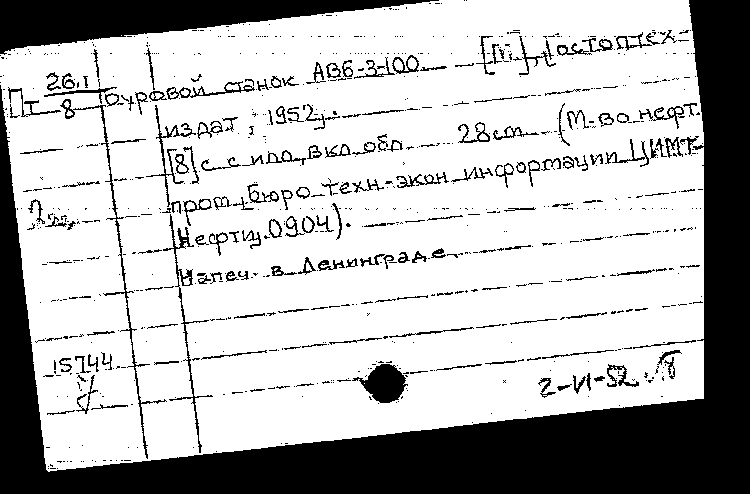 Пт 26.1/8 Буровой станок АВБ-3-100. [М], Гостоптех-
издат, 1952.
[8] с с илл., вкл. обл. 28 cm (М-во нефт.
пром. бюро техн.-экон. информации ЦИМТ-
Нефти. 0904).
Напеч. в Ленинграде.
2 экз.
15744
2-VI-52